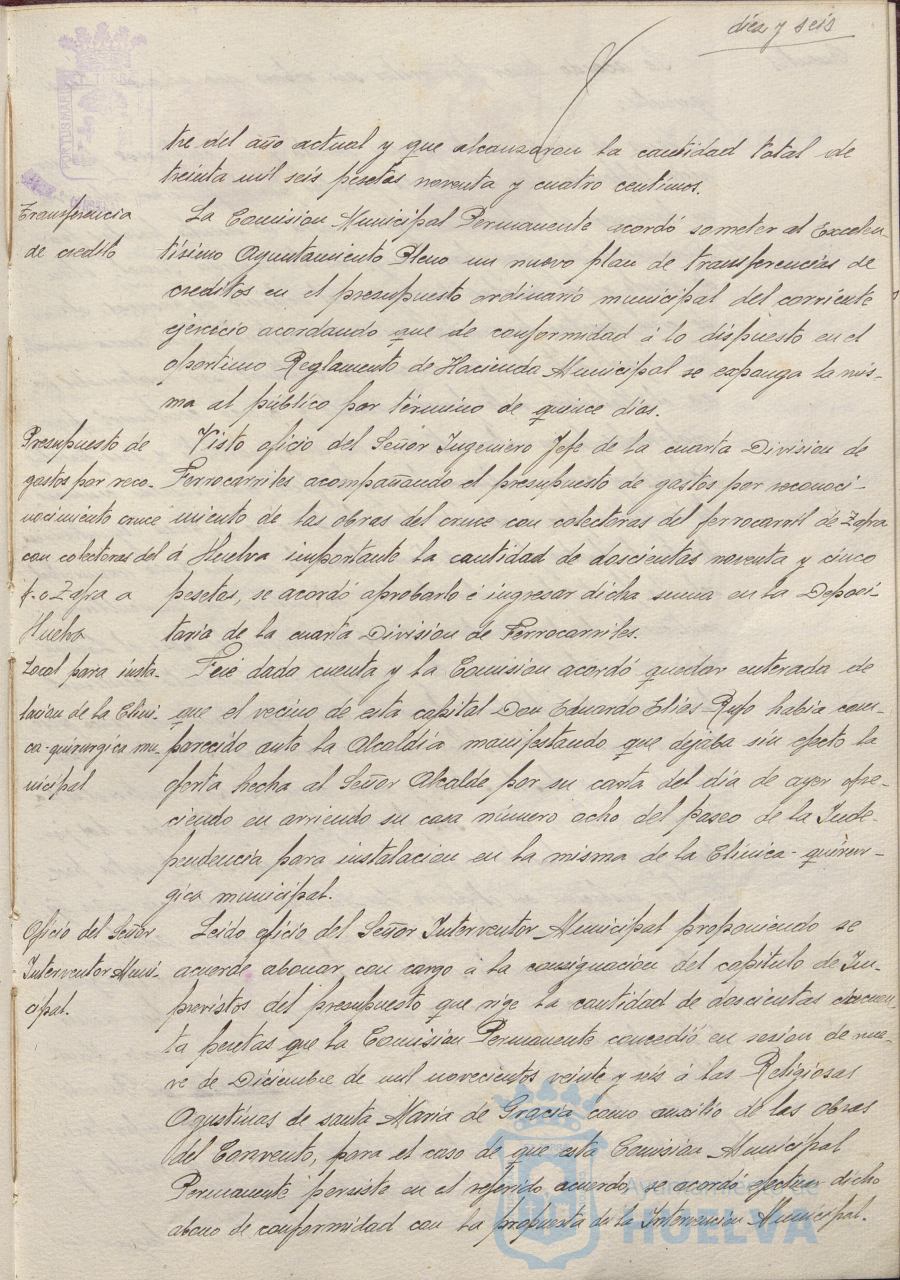 diez y seis
tre del año actual y que alcanzaron la cantidad total de
treinta mil seis pesetas noventa y cuatro centimos.
Transferencia
de credito
La Comision Municipal Permanente acordó someter al Excelen-
tísimo Ayuntamiento Pleno un nuevo plan de transferencias de
creditos en el presupuesto ordinario municipal del corriente
ejercicio acordando que de conformidad á lo dispuesto en el
oportuno Reglamento de Hacienda Municipal se exponga la mis-
ma al público por término de quince dias.
Presupuesto de
gastos por reco-
nocimiento cruce
con colectores del
f. c. Zafra a
Huelva
Visto oficio del Señor Ingeniero Jefe de la cuarta Division de
Ferrocarriles acompañando el presupuesto de gastos por reconoci-
miento de las obras del cruce con colectoras del ferrocarril de Zafra
á Huelva importante la cantidad de doscientas noventa y cinco
pesetas, se acordó aprobarlo é ingresar dicha suma en la Deposi-
taria de la cuarta Division de Ferrocarriles.
Local para insta-
lacion de la Clini-
ca-quirurgica mu-
nicipal
Fué dada cuenta y la Comision acordó quedar enterada de
que el vecino de esta capital Don Eduardo Elias Rufo habia com-
parecido ante la Alcaldía manifestando que dejaba sin efecto la
oferta hecha al Señor Alcalde por su carta del día de ayer ofre-
ciendo en arriendo su casa número ocho del paseo de la Inde-
pendencia para instalacion en la misma de la Clínica-quirur-
gica municipal.
Oficio del Señor
Interventor Muni-
cipal.
Leido oficio del Señor Interventor Municipal proponiendo se
acuerde abonar con cargo á la consignacion del capitulo de Im-
previstos del presupuesto que rige la cantidad de doscientas cincuen-
ta pesetas que la Comision Permanente concedió en sesion de nue-
ve de Diciembre de mil novecientos veinte y seis á las Religiosas
Agustinas de santa Maria de Gracia como auxilio de las obras
del Convento, para el caso de que esta Comision Municipal
Permanente persiste en el referido acuerdo, se acordó efectuar dicho
abono de conformidad con la propuesta de la Intervencion Municipal.
Ayuntamiento de
HUELVA